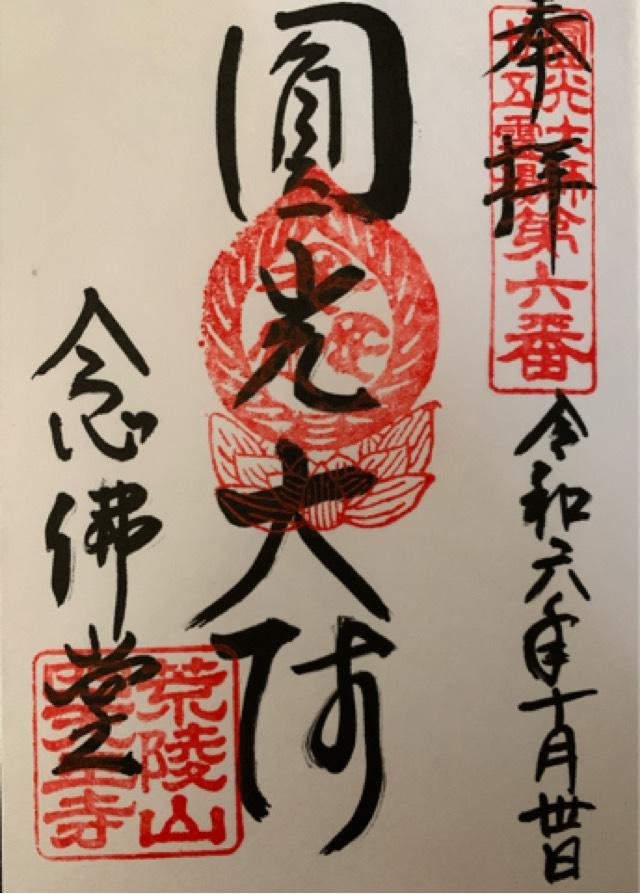 奉拝
圓光大師
廿五靈場
第六番
令和六年十月丗日
圓光大師
念佛堂
荒陵山
四天王寺